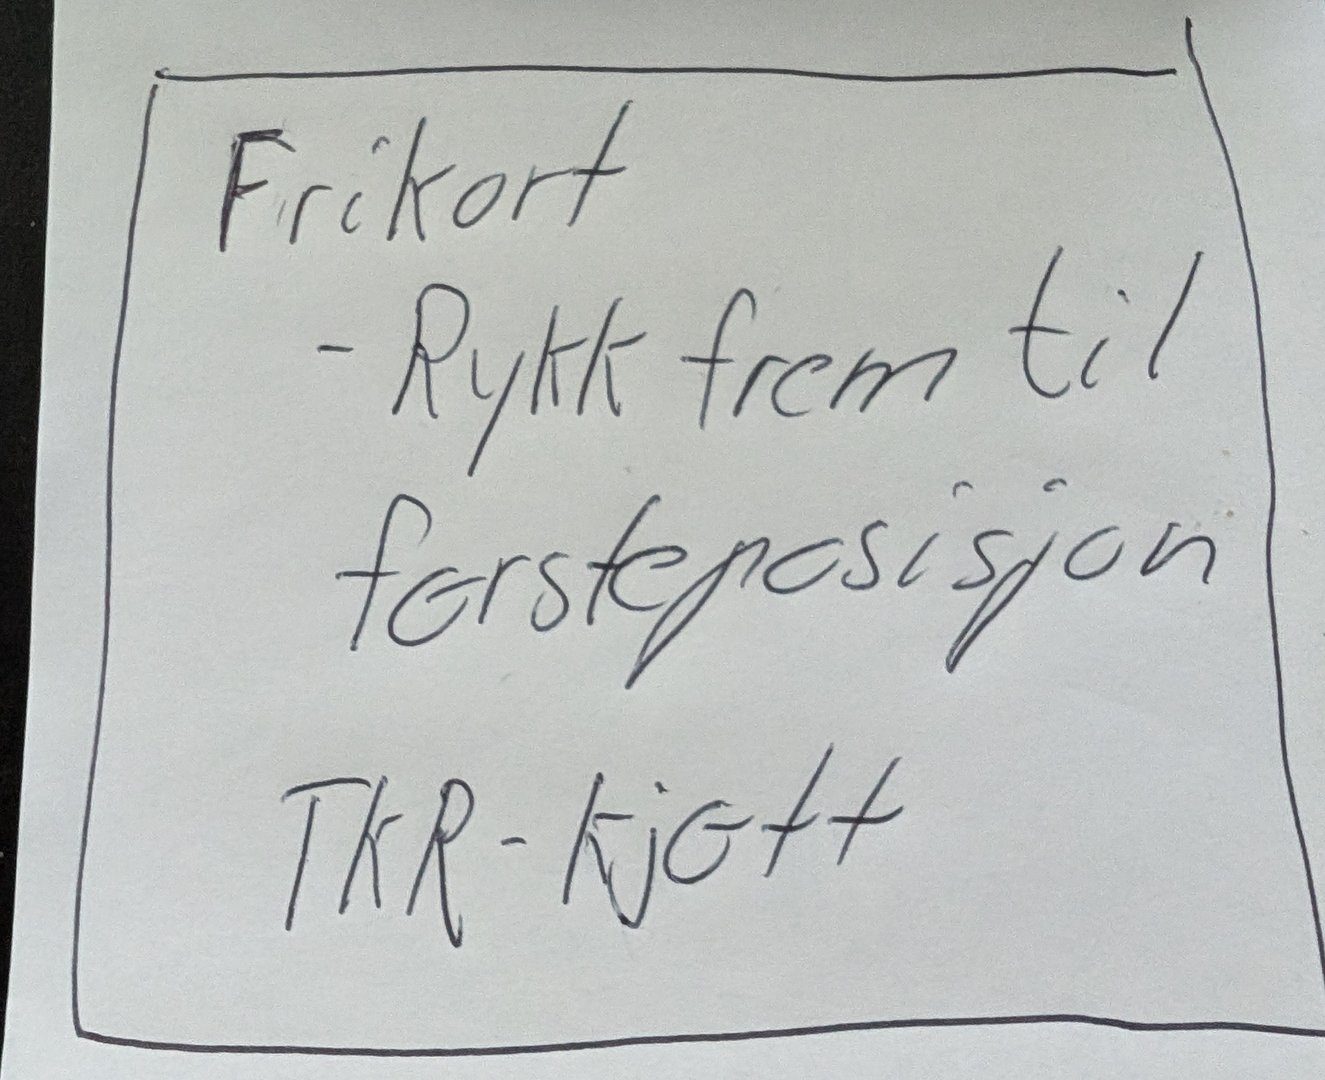 Frikort
- Rykk frem til
førsteposisjon
TKR - kjøtt